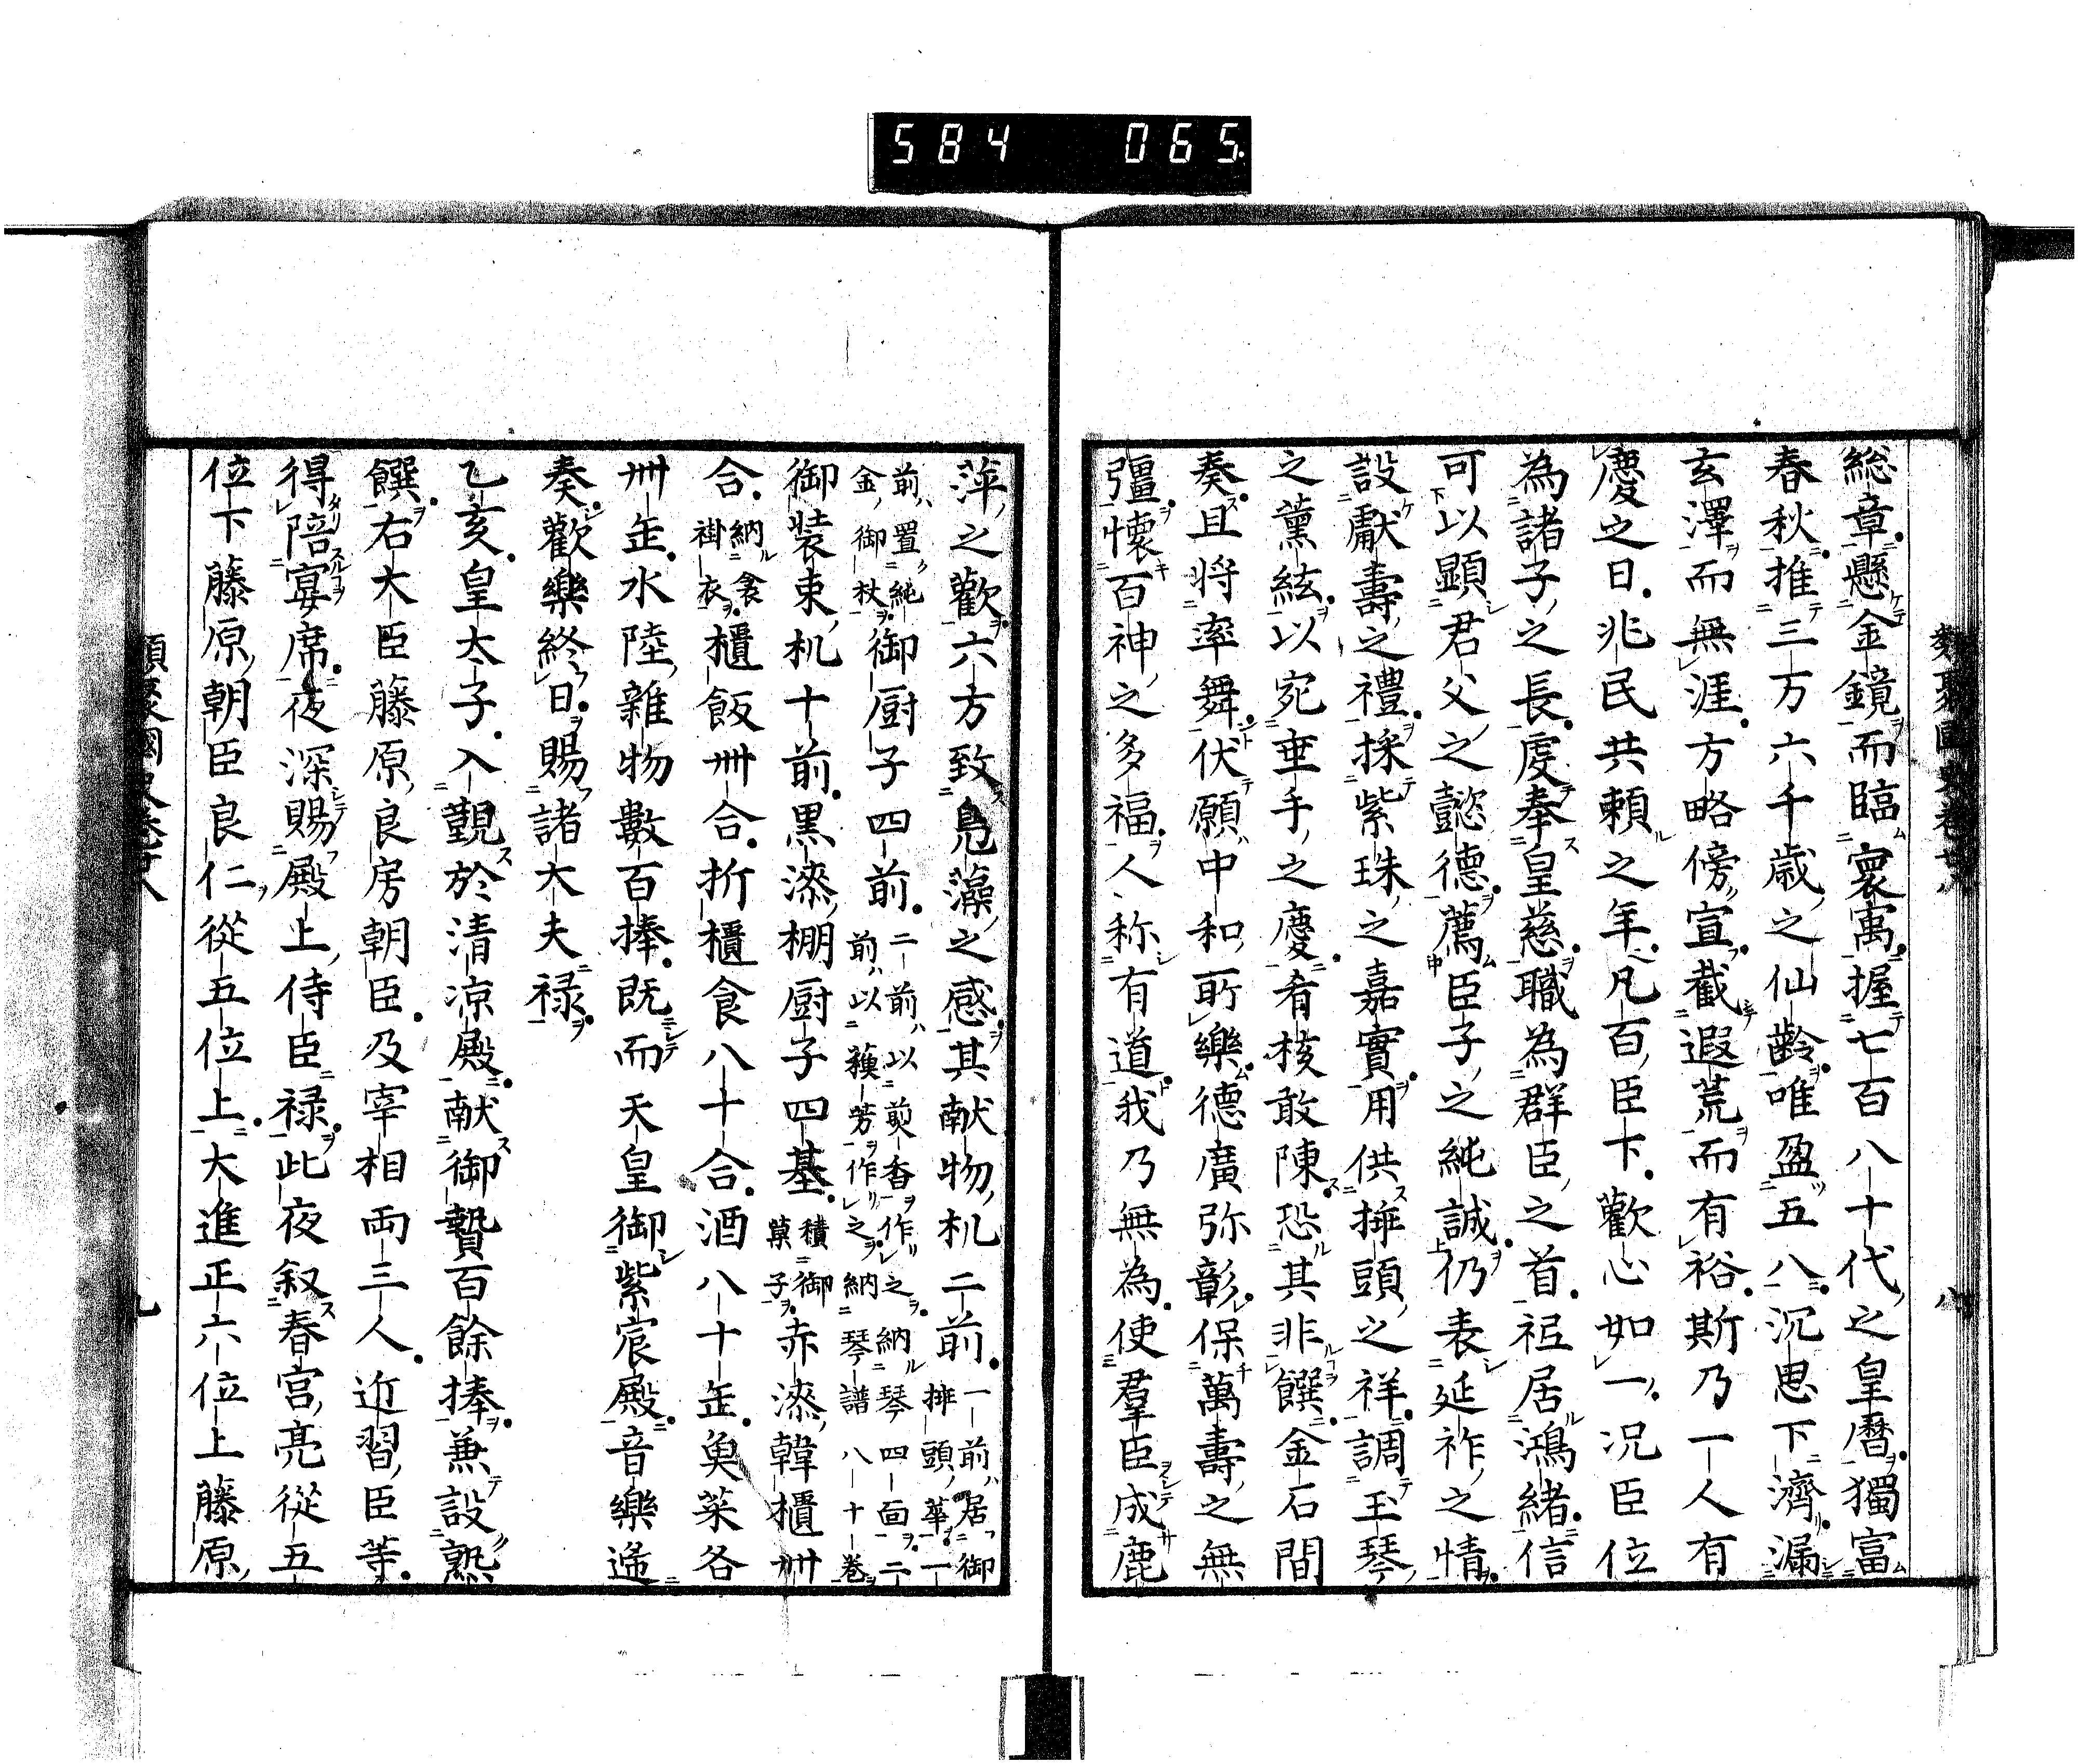 584 065
総章懸金鏡而臨寰㝢握七百八十代之皇暦獨富
春秋推三万六千歳之仙齢唯盈五八沉思下濟漏
玄澤而無涯方略傍宣截遐荒而有裕斯乃一人有
慶之日兆民共頼之年凡百臣下歓心如一況臣位
為諸子之長虔奉皇慈職為群臣之首祗居鴻緒信
可以顕君父之懿德薦臣子之純誠仍表延祚之情
設獻壽之禮採紫珠之嘉實用供挿頭之祥調玉琴
之薫絃以宛垂手之慶肴核敢陳恐其非饌金石間
奏且将率舞伏願中和所樂德廣弥彰保萬壽之無
彊懐百神之多福人称有道我乃無為使羣臣成鹿
八
萍之歡六方致鳬藻之感其献物机二前一前居御挿頭華一
前置純金御杖御厨子四前二前以䓸香作之納琴四面二前以蘓芳作之納琴譜八十巻
御装束机十前黒漆棚厨子四基積御菓子赤漆韓櫃卌
合納衾褂衣櫃飯卌合折櫃食八十合酒八十缶魚菜各
卌缶水陸雜物數百捧既而天皇御紫宸殿音樂遥
奏歡樂終日賜諸大夫禄
乙亥皇太子入覲於清凉殿献御贄百餘捧兼設熟
饌右大臣藤原良房朝臣及宰相両三人近習臣等
得陪宴席夜深賜殿上侍臣禄此夜叙春宮亮從五
位下藤原朝臣良仁從五位上大進正六位上藤原
九